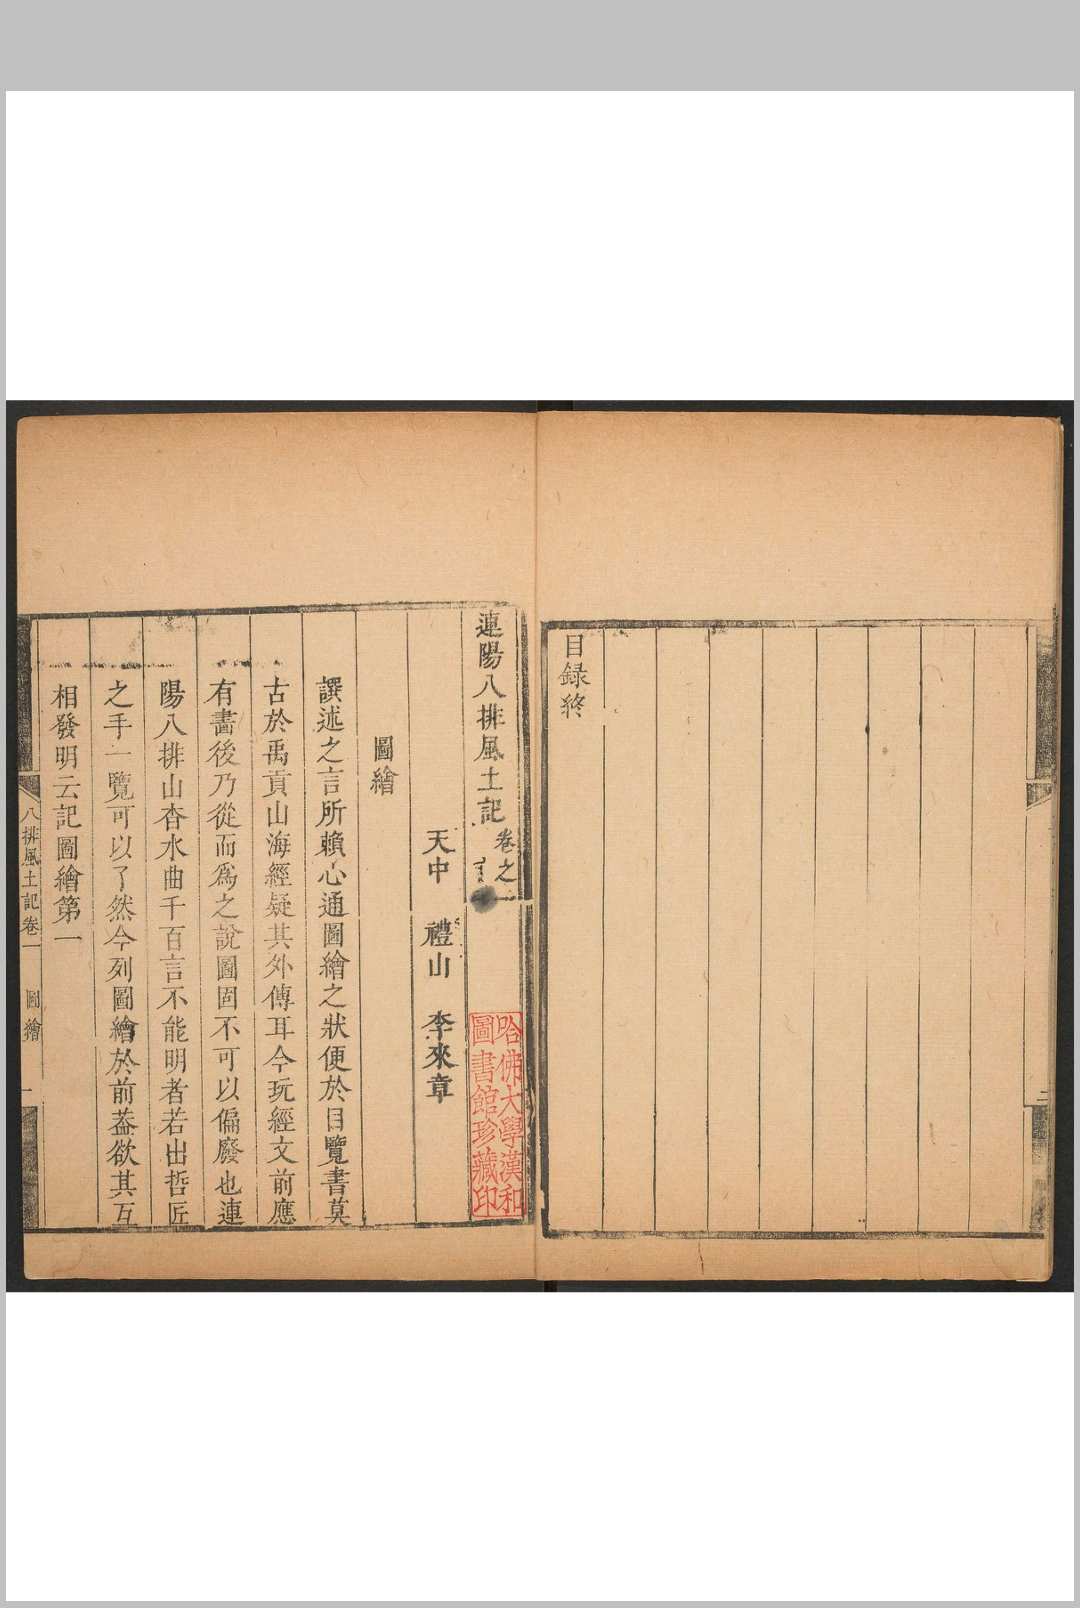 目録終
二
連陽八排風土記卷之一
哈佛大學漢和
圖書館珍藏印
天中 禮山 李來章
圖繪
譔述之言所賴心通圖繪之狀便於目覽書莫
古於禹貢山海經疑其外傳耳今玩經文前應
有畫後乃從而為之說圖固不可以偏廢也連
陽八排山杳水曲千百言不能明者若出哲匠
之手一覽可以了然今列圖繪於前葢欲其互
相發明云記圖繪第一
八排風土記卷一 圖繪 一